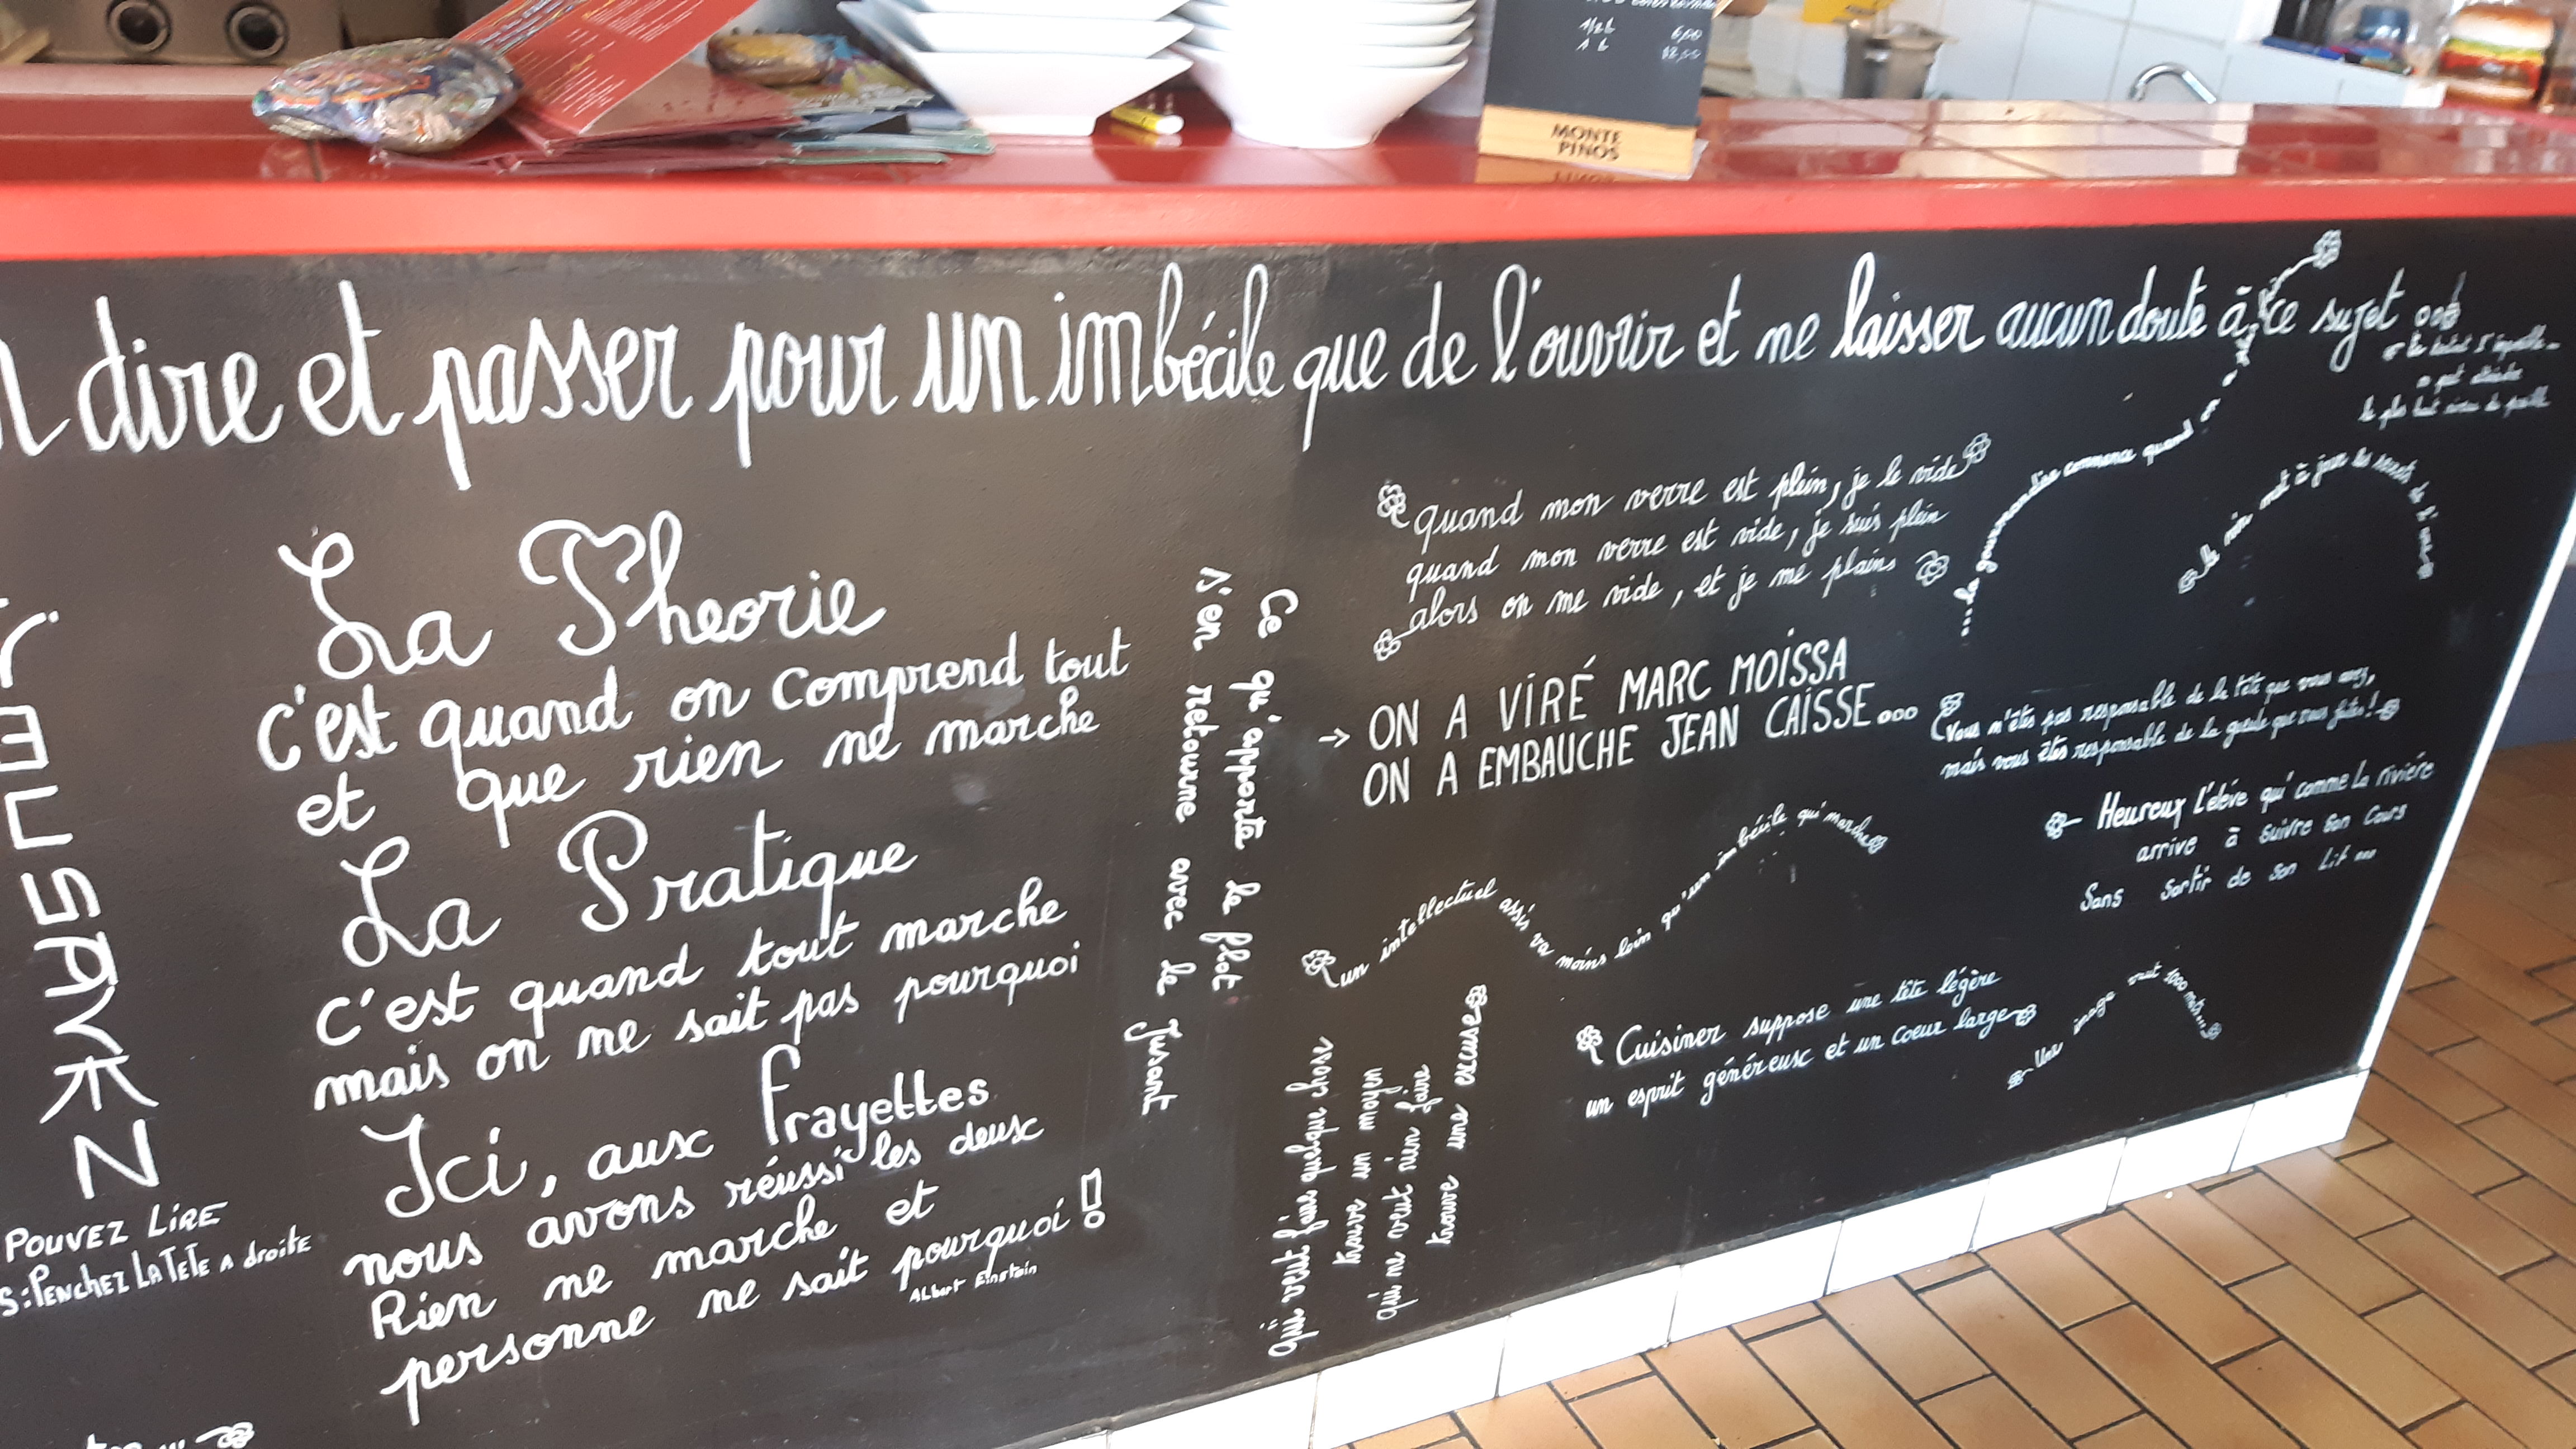 1/2 L 6,00
1 L 12,00
MONTE
PINOS
dire et passer pour un imbécile que de l'ouvrir et ne laisser aucun doute à ce sujet ...
La Theorie
c'est quand on comprend tout
et que rien ne marche
La Pratique
c'est quand tout marche
mais on ne sait pas pourquoi
Ici, aux Frayettes
nous avons réussi les deux
Rien ne marche et
personne ne sait pourquoi !
Albert Einstein
POUVEZ LIRE
S: PENCHEZ LA TETE A droite
Ce qu'apporte le flot
s'en retourne avec le Jusant
quand mon verre est plein, je le vide
quand mon verre est vide, je suis plein
alors on me vide, et je me plains
→ ON A VIRÉ MARC MOISSA
ON A EMBAUCHE JEAN CAISSE...
un intellectuel assis va moins loin qu'un imbécile qui marche
qui veut faire quelque chose
trouve un moyen
qui ne veut rien faire
trouve une excuse
Cuisiner suppose une tête légère
un esprit généreux et un coeur large
...la gourmandise commence quand on a
le vin met à jour les secrets de l'
Vous n'êtes pas responsable de la tête que vous avez,
mais vous êtes responsable de la gueule que vous faites!
Heureux l'élève qui comme la rivière
arrive à suivre son cours
Sans sortir de son Lit ...
Une image vaut 1000 mots...